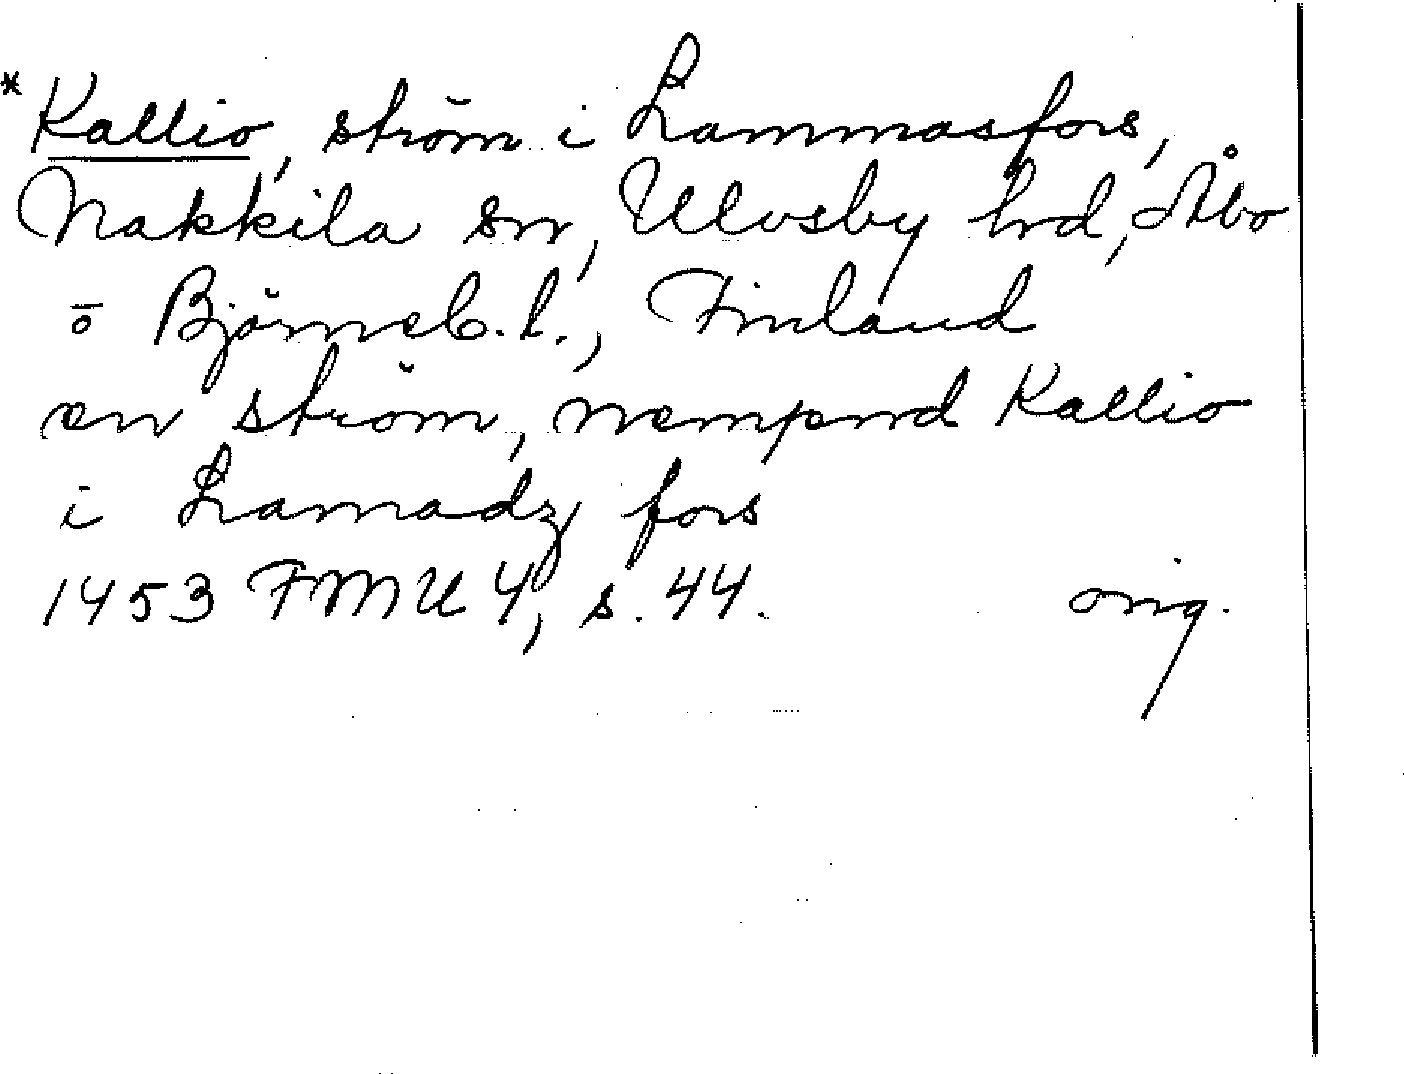 *Kallio, ström i Lammasfors,
Nakkila sn, Ulvsby hd, Åbo
o Björneb. l., Finland
en ström, nempnd Kallio
i Lamadz fors
1453 FMU 4, s. 44. orig.